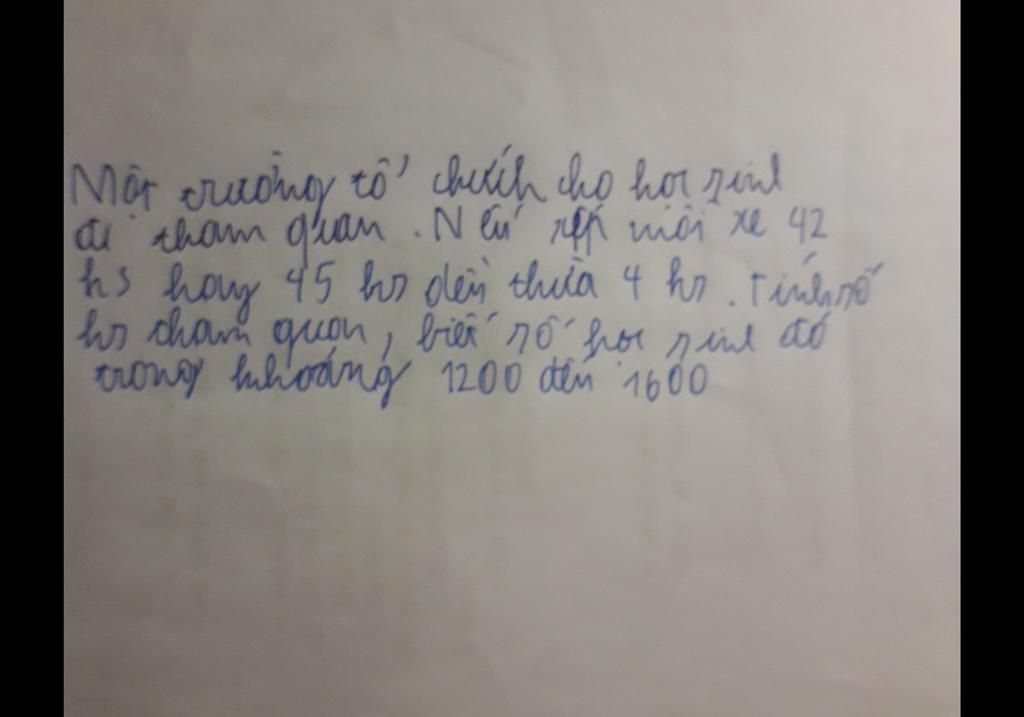 Một trường tổ chưích cho học sinh
đi tham quan. Nếu xếp mỗi xe 42
hs hay 45 hs đến thừa 4 hs. Tính số
hs tham quan, biết số học sinh đó
trong khoảng 1200 đến 1600